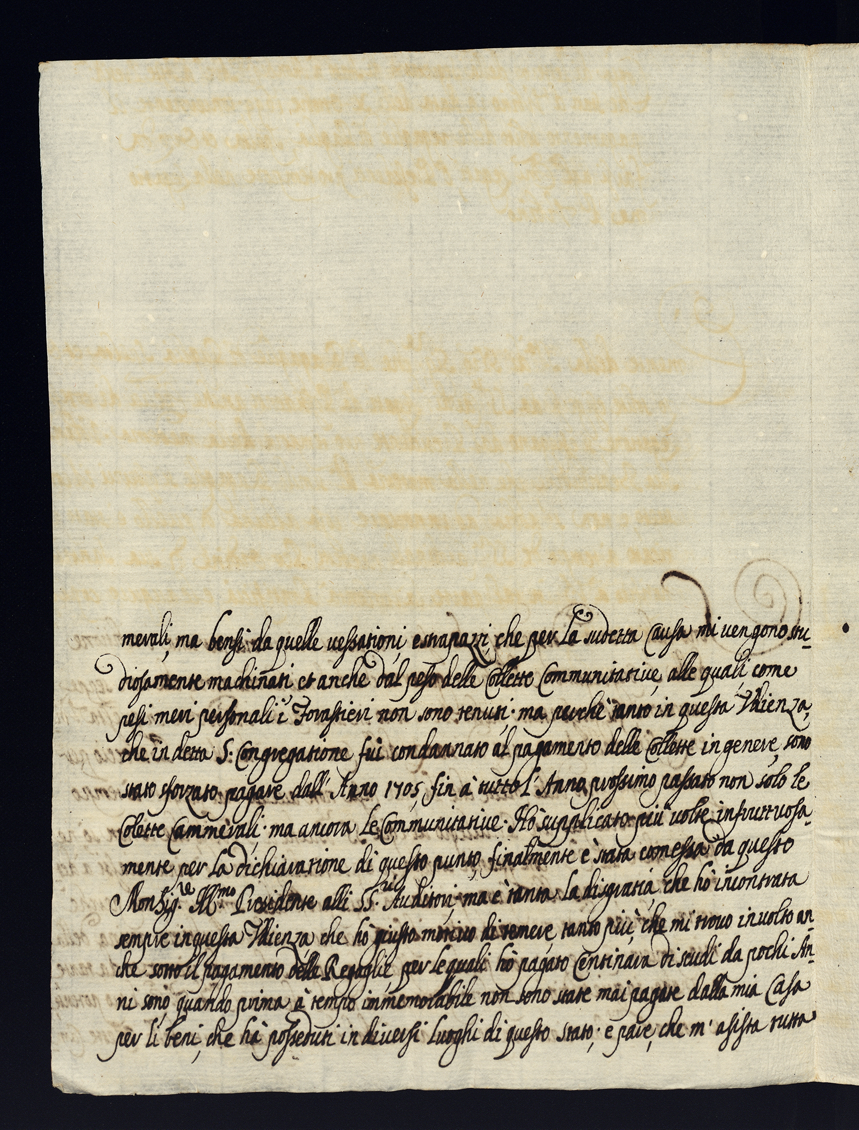 merali, ma bensì da quelle vessationi, e strapazzi che per la sudetta Causa mi vengono stu-
diosamente machinati et anche dal peso delle Collette Communitative, alle quali come
pesi meri personali i Forastieri non sono tenuti. ma perche tanto in questa Udienza,
che in detta S. Congregatione fui condannato al pagamento delle Collette in genere, sono
stato sforzato pagare dall'Anno 1705, fin à tutto l'Anno prossimo passato non solo le
Colette Cammerali. ma ancora le Communitative. Hò supplicato più volte infruttuosa-
mente per la dichiaratione di questo punto, finalmente è stata comessa da questo
Monsig.re Ill.mo Presidente alli SS.ri Auditori. ma è tanta la disgratia, che hò incontrata
sempre in questa Udienza che hò giusto motivo di temere, tanto più che mi trovo involto an-
che sotto il pagamento delle Regaglie, per le quali hò pagato Centinara di scudi da pochi An-
ni sono, quando prima à tempo immemorabile non sono state mai pagate dalla mia Casa
per li beni, che hà posseduti in diversi luoghi di questo stato. e pare, che m'asista tutta